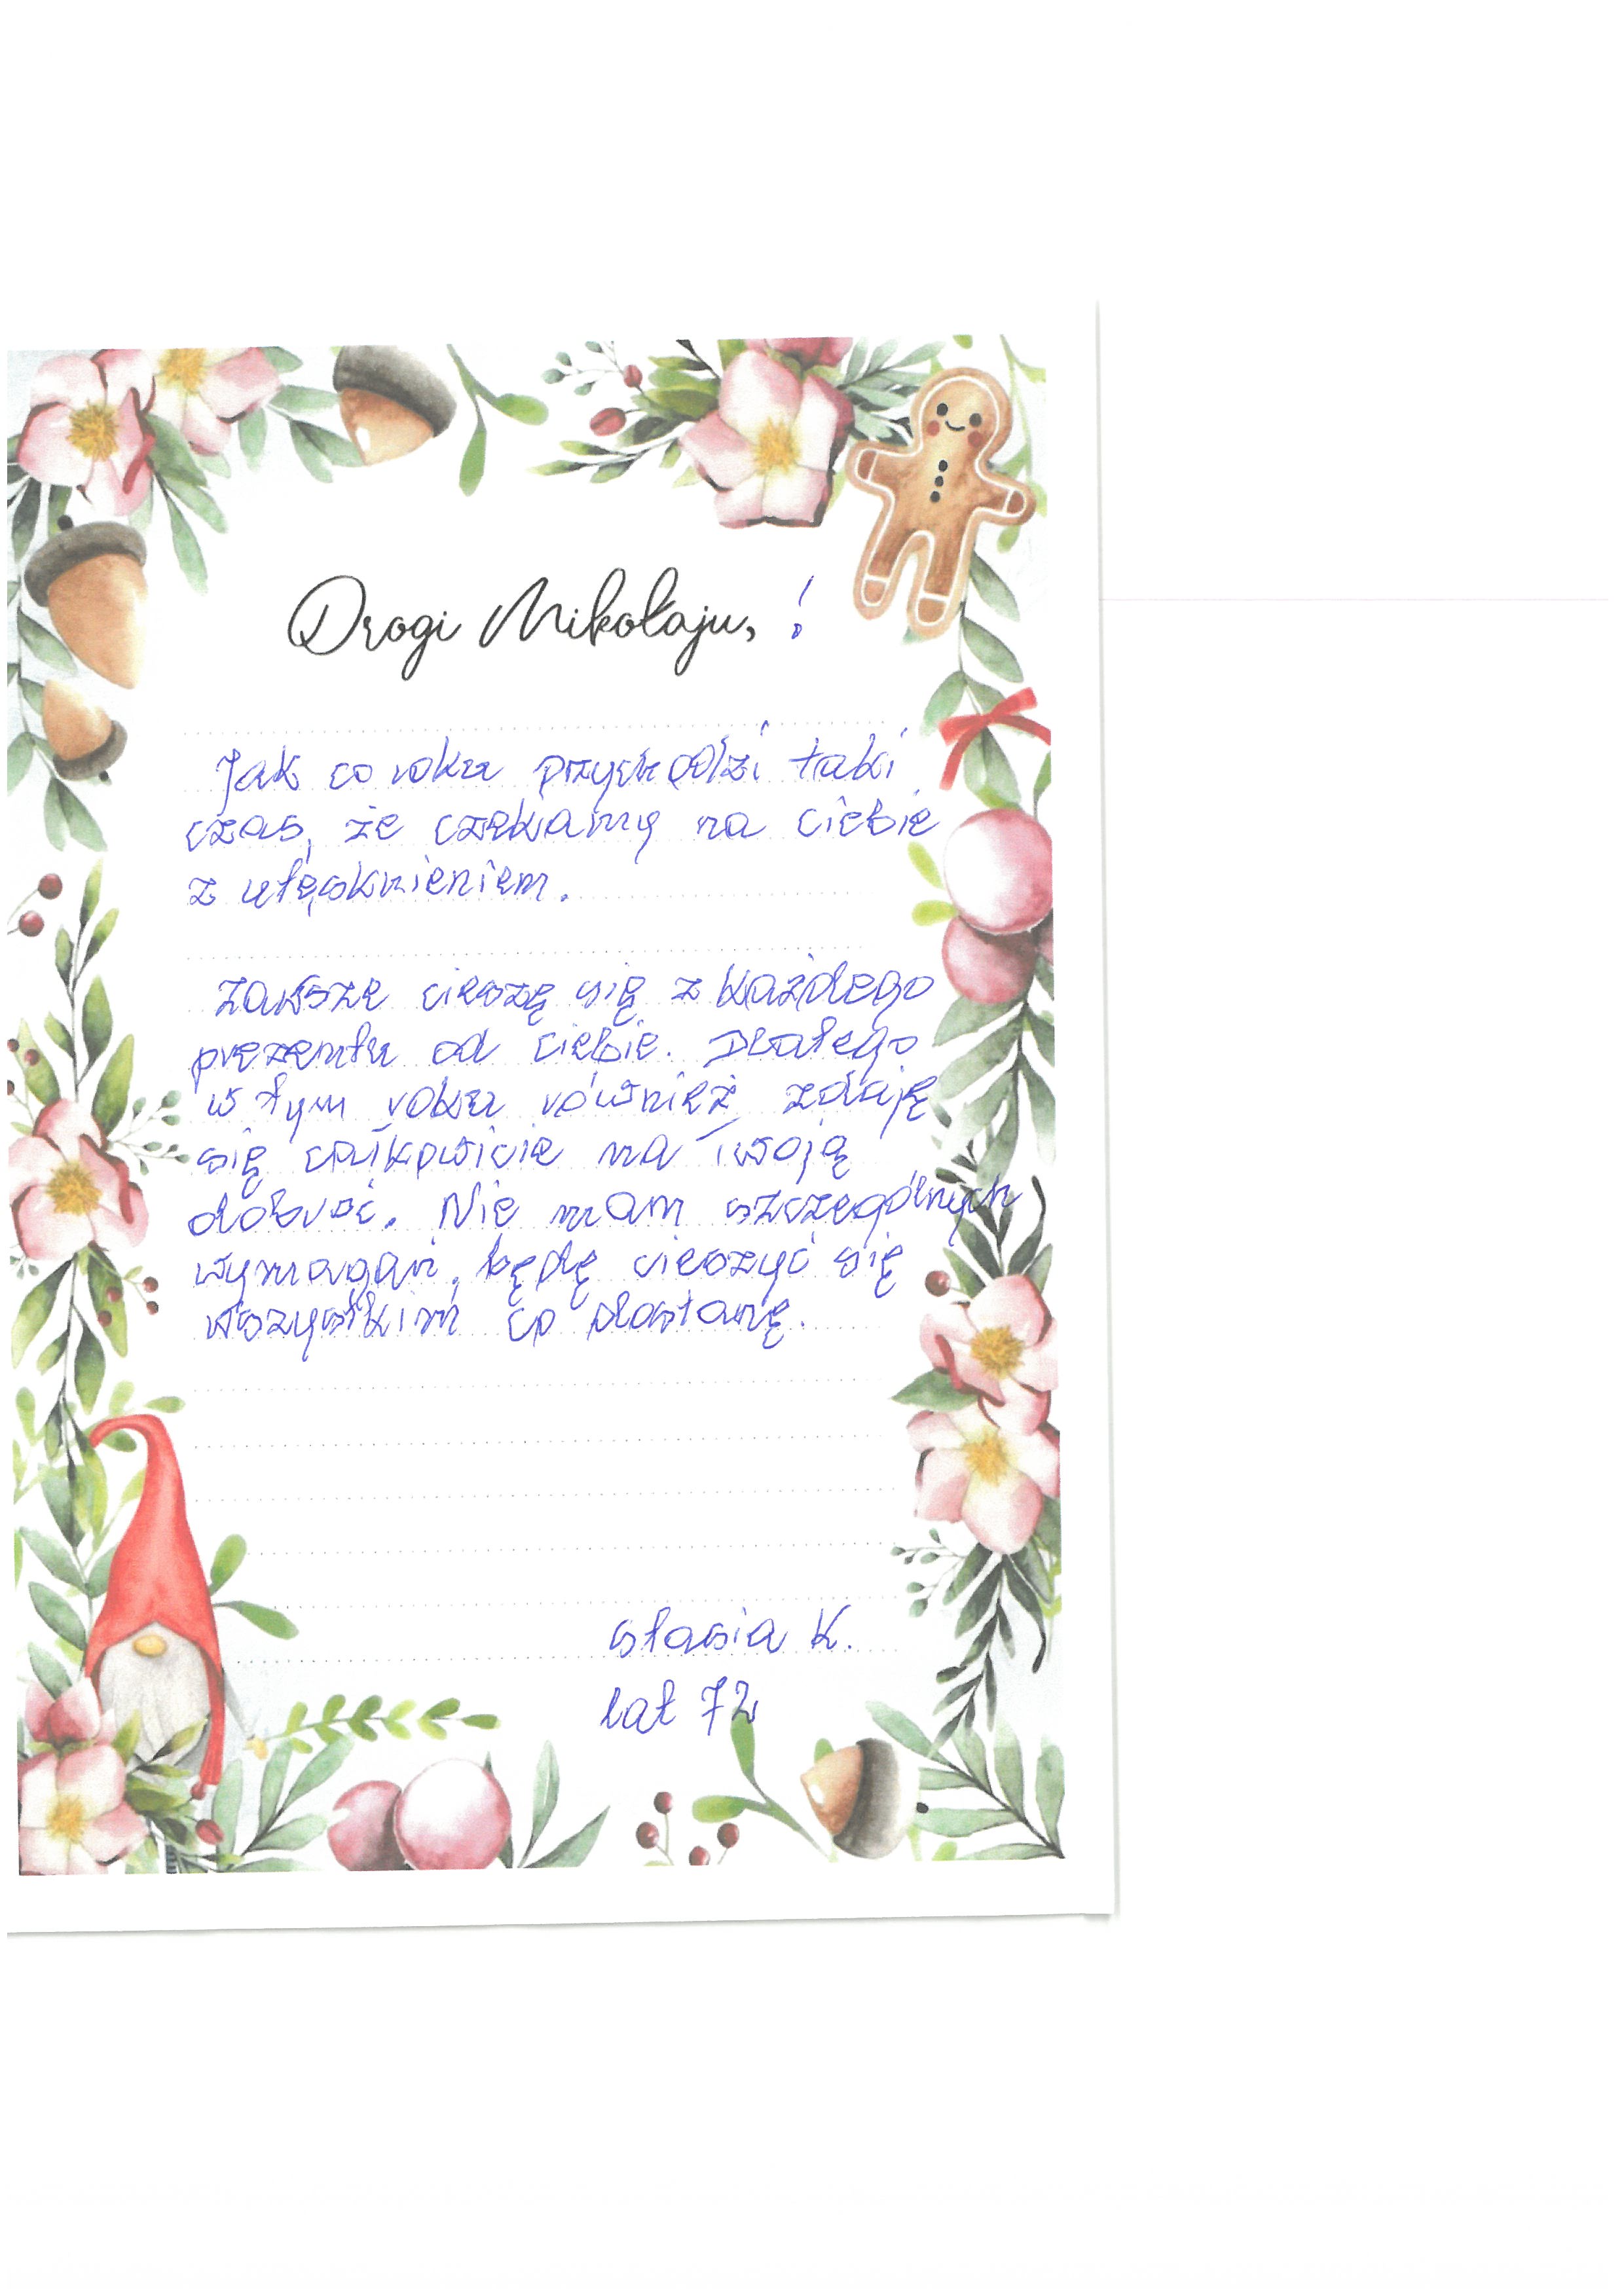 Drogi Mikołaju, !
Jak co roku przychodzi taki
czas, że czekamy na ciebie
z utęsknieniem.
Zawsze cieszę się z każdego
prezentu od ciebie. Dlatego
w tym roku również zdaję
się całkowicie na Twoją
dobroć. Nie mam szczególnych
wymagań, będę cieszyć się
wszystkim co dostanę.
Stasia K.
lat 72